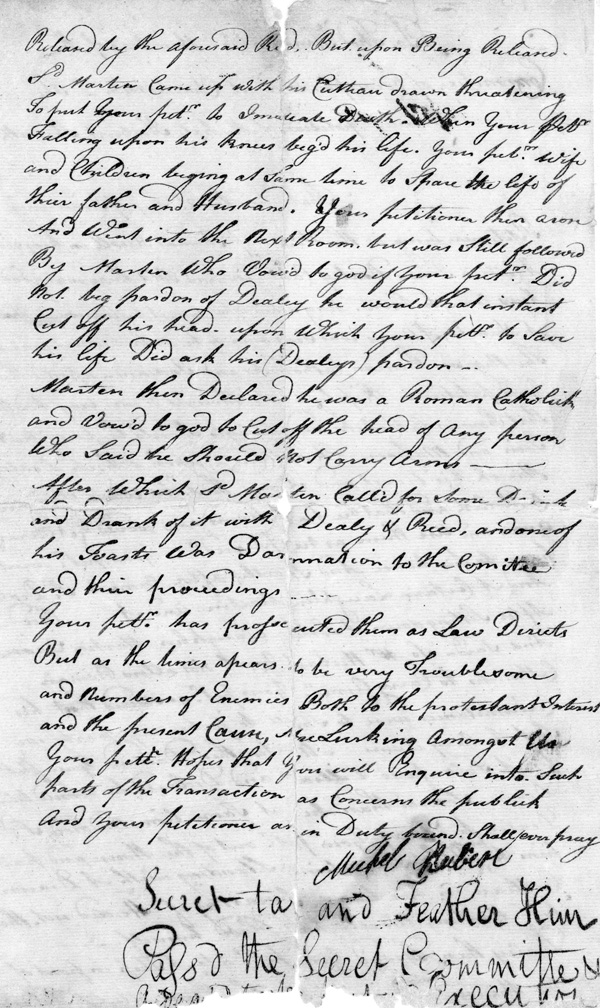 Released by the aforesaid Reed, But upon Being Releasd
Sd Marten Came up with his Cutteau drawn threatening
To put your petr. to Imediate Death. When your petr.
Falling upon his knees beg'd his life. your petrs. wife
and Children beging at Same time to Spare the life of
their father and Husband. Your petitioner then arose
And Went into the Next Room. but was Still followed
By Marten Who Vow'd to god if your petr. Did
Not beg pardon of Dealey he would that instant
Cut off his head. upon Which your petr. to Save
his life Did ask his (Dealeys) pardon —
Marten then Declared he was a Roman Catholick
and Vow'd to god to Cut off the head of Any person
Who Said he Should Not Carry Arms —
After Which Sd Marten Call'd for Some Drink
and Drank of it with Dealy & Reed, and one of
his Toasts Was Damnation to the Comittee
and their proceedings —
Your petr. has prosecuted them as Law Directs
But as the times apears to be very Troublesome
and Numbers of Enemies Both to the protestant Interest
and the present Cause, Are Lurking Amongst Us
Your petr. Hopes that You will Enquire into Such
parts of the Transaction as Concerns the publick
And your petitioner as in Duty bound. Shall ever pray
Michel
Secret ta and Feather Him
Pass'd the Secret Committee &